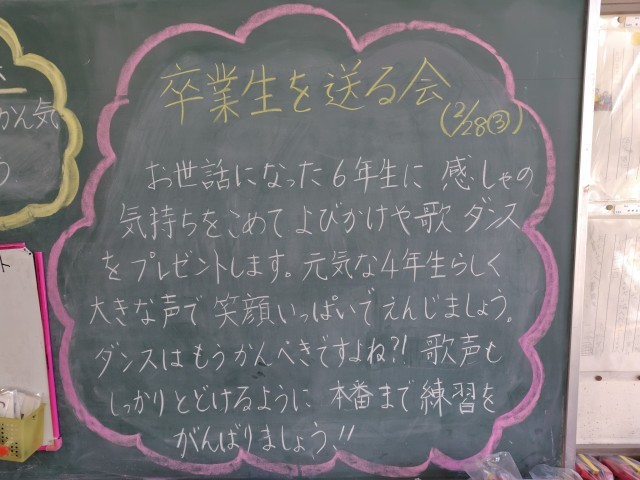 卒業生を送る会
(2/28③)
お世話になった6年生に 感しゃの
気持ちをこめて よびかけや歌 ダンス
をプレゼントします。元気な4年生らしく
大きな声で 笑顔いっぱいでえんじましょう。
ダンスはもうかんぺきですよね?! 歌声も
しっかりとどけるように 本番まで練習を
がんばりましょう!!
かん気
う
ト